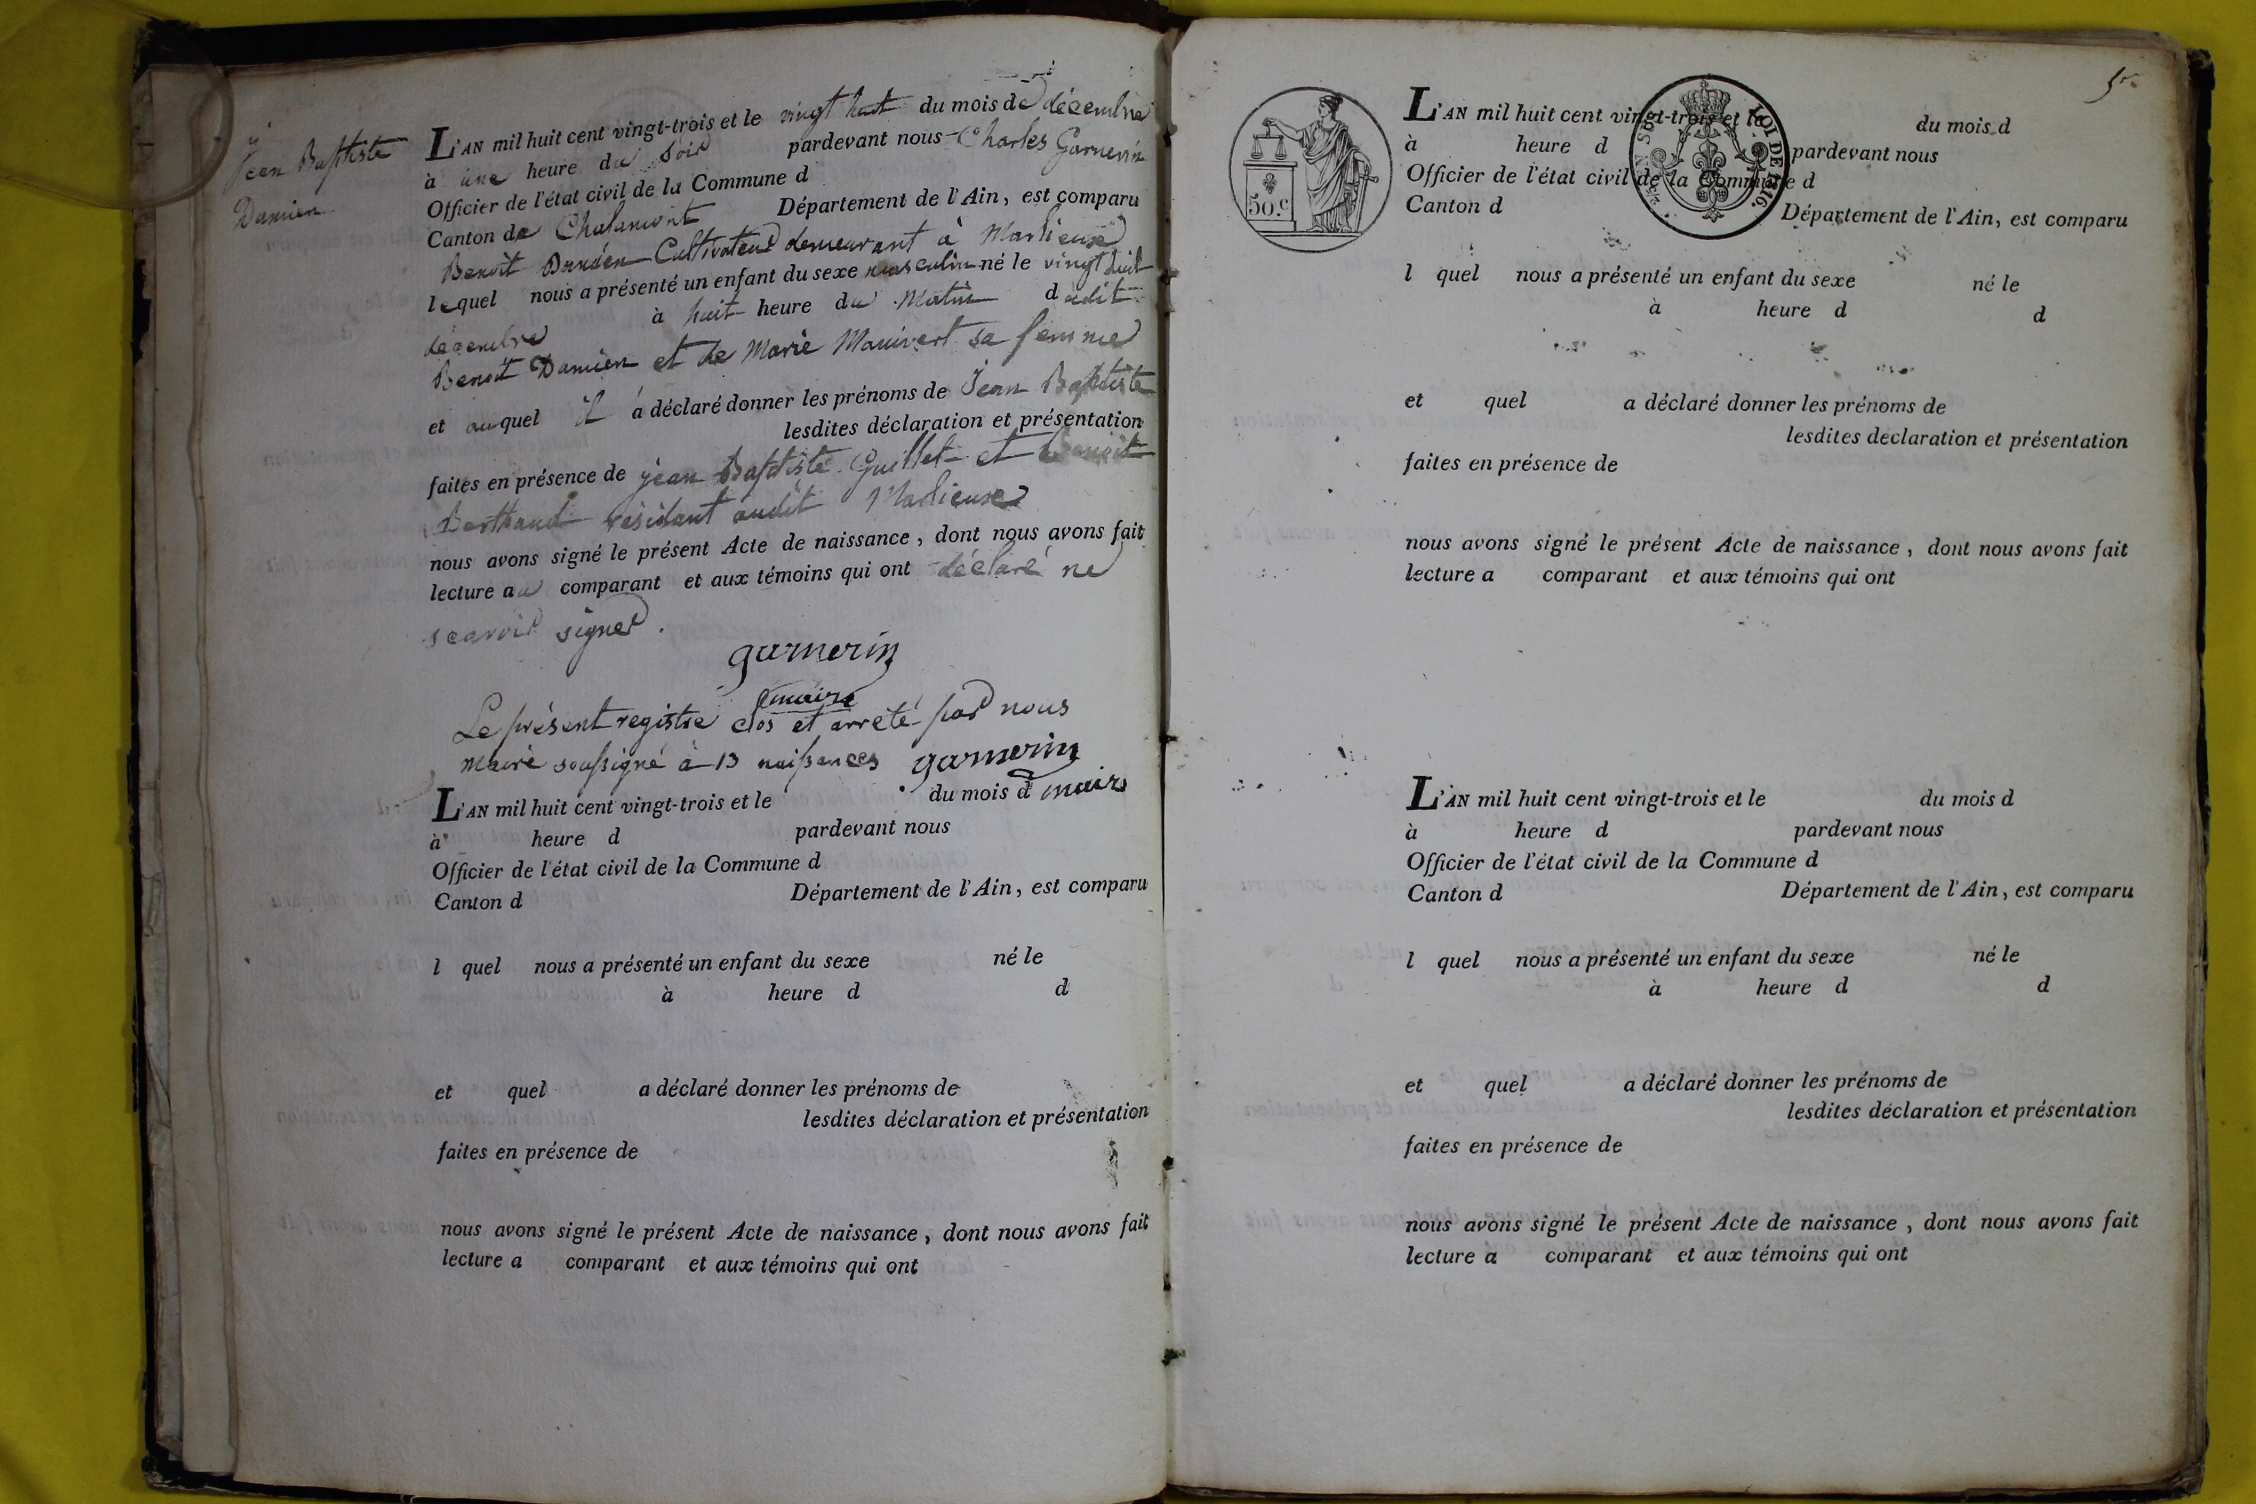 Jean Baptiste
Damien
L'AN mil huit cent vingt-trois et le vingt huit du mois de décembre
à une heure du soir pardevant nous Charles Garnerin
Officier de l'état civil de la Commune d
Canton de Chalamont Département de l'Ain, est comparu
Benoit Damien Cultivateur demeurant à Marlieux
lequel nous a présenté un enfant du sexe masculin né le vingt huit
décembre à huit heure du Matin dudit
Benoit Damien et de Marie Manivert sa femme
et auquel il a déclaré donner les prénoms de Jean Baptiste
lesdites déclaration et présentation
faites en présence de jean Baptiste Guillet et Benoit
Berthaud résidant audit Marlieux
nous avons signé le présent Acte de naissance, dont nous avons fait
lecture au comparant et aux témoins qui ont déclaré ne
scavoir signer.
garnerin
maire
Le présent registre clos et arreté par nous
maire soussigné à 13 naissances garnerin
maire
L'AN mil huit cent vingt-trois et le du mois d
à heure d pardevant nous
Officier de l'état civil de la Commune d
Canton d Département de l'Ain, est comparu
l quel nous a présenté un enfant du sexe né le
à heure d d
et quel a déclaré donner les prénoms de
lesdites déclaration et présentation
faites en présence de
nous avons signé le présent Acte de naissance, dont nous avons fait
lecture a comparant et aux témoins qui ont
50.c
LOI DE 1816.
L'AN mil huit cent vingt-trois et le du mois d
à heure d pardevant nous
Officier de l'état civil de la Commune d
Canton d Département de l'Ain, est comparu
l quel nous a présenté un enfant du sexe né le
à heure d d
et quel a déclaré donner les prénoms de
lesdites declaration et présentation
faites en présence de
nous avons signé le présent Acte de naissance, dont nous avons fait
lecture a comparant et aux témoins qui ont
L'AN mil huit cent vingt-trois et le du mois d
à heure d pardevant nous
Officier de l'état civil de la Commune d
Canton d Département de l'Ain, est comparu
l quel nous a présenté un enfant du sexe né le
à heure d d
et quel a déclaré donner les prénoms de
lesdites déclaration et présentation
faites en présence de
nous avons signé le présent Acte de naissance, dont nous avons fait
lecture a comparant et aux témoins qui ont